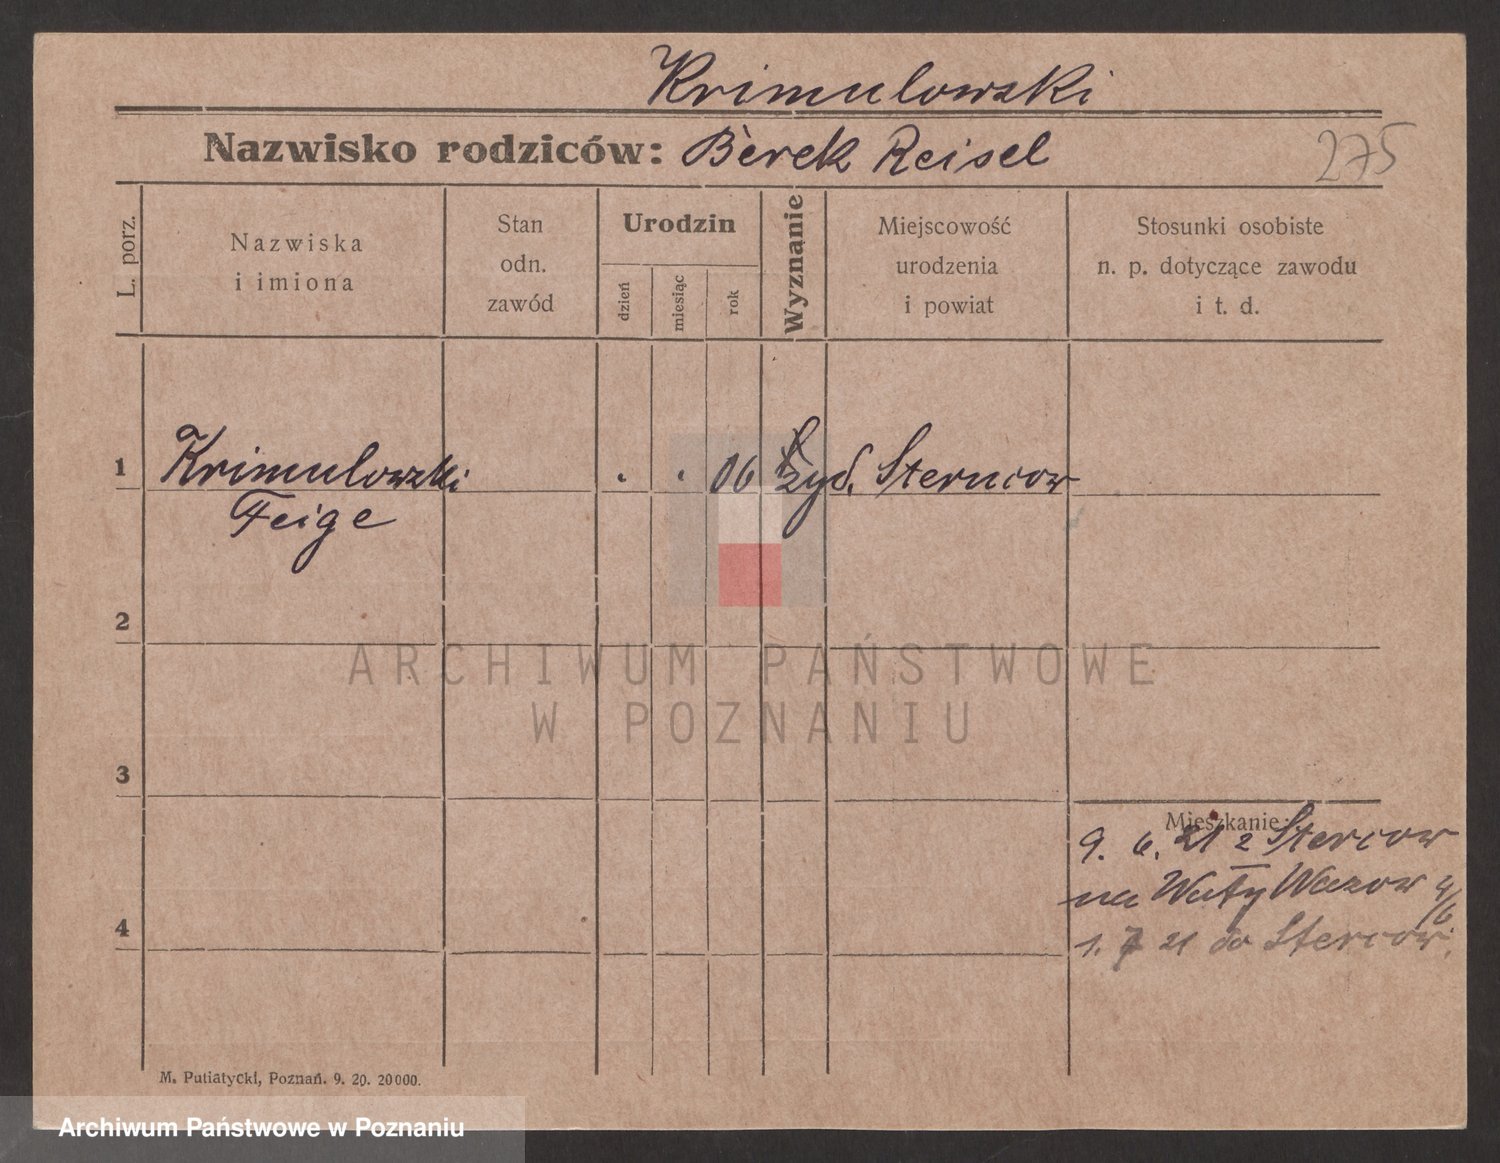 Krimulowski
Nazwisko rodziców: Berek Reisel
275
L. porz.
Nazwiska
i imiona
Stan
odn.
zawód
Urodzin
dzień
miesiąc
rok
Wyznanie
Miejscowość
urodzenia
i powiat
Stosunki osobiste
n. p. dotyczące zawodu
i t. d.
1 Krimulowski . . 06 żyd. Sterncow
Feige
2
3
4
Mieszkanie:
9. 6. 21 z Stercow
na Wały 4/6
1. 7 21 do Stercow.
M. Putiatycki, Poznań. 9. 20. 20000.
ARCHIWUM PAŃSTWOWE
W POZNANIU
Archiwum Państwowe w Poznaniu